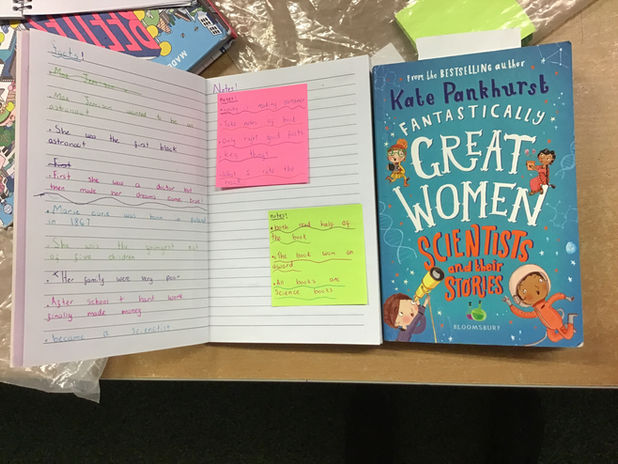 Facts!
Mae Jemison wanted to be an
astronaut
• She was the first black
astronaut
• first
• First she was a doctor but
then made her dreams come true!
• Marie curie was born in poland
in 1867
• She was the youngest out
of five children
• Her family were very poor
• After school + hard work
finally made money
• became a scientist
Notes!
Notes:
reading
• Take notes of book
• Only good facts
• Key things!
the
most
notes!
• both read half of
the book
• The book won an
award
• All books are
science books
FROM THE BESTSELLING author
Kate Pankhurst
FANTASTICALLY
GREAT
WOMEN
SCIENTISTS
and their
STORIES
BLOOMSBURY